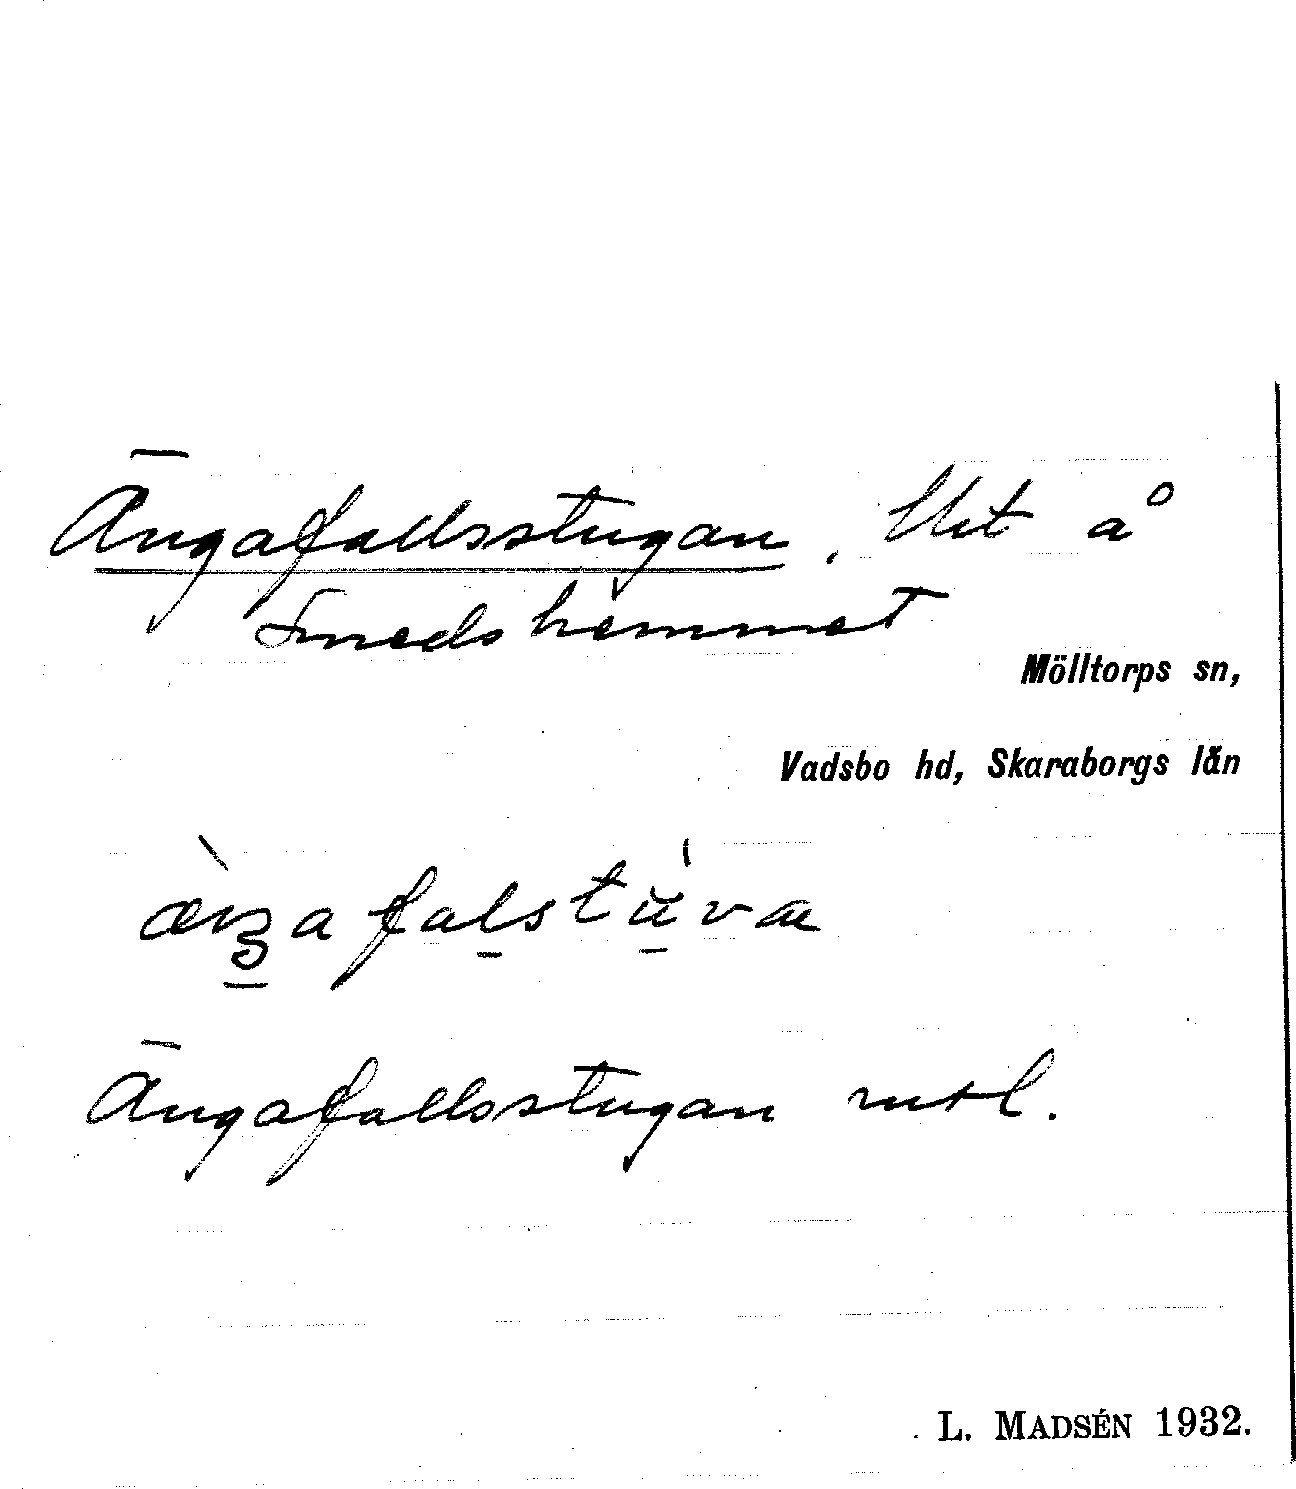 Ängafallsstugan, Utä å
Smedshemmet
Mölltorps sn,
Vadsbo hd, Skaraborgs län
Ängafallsstugan mtl.
L. MADSÉN 1932.